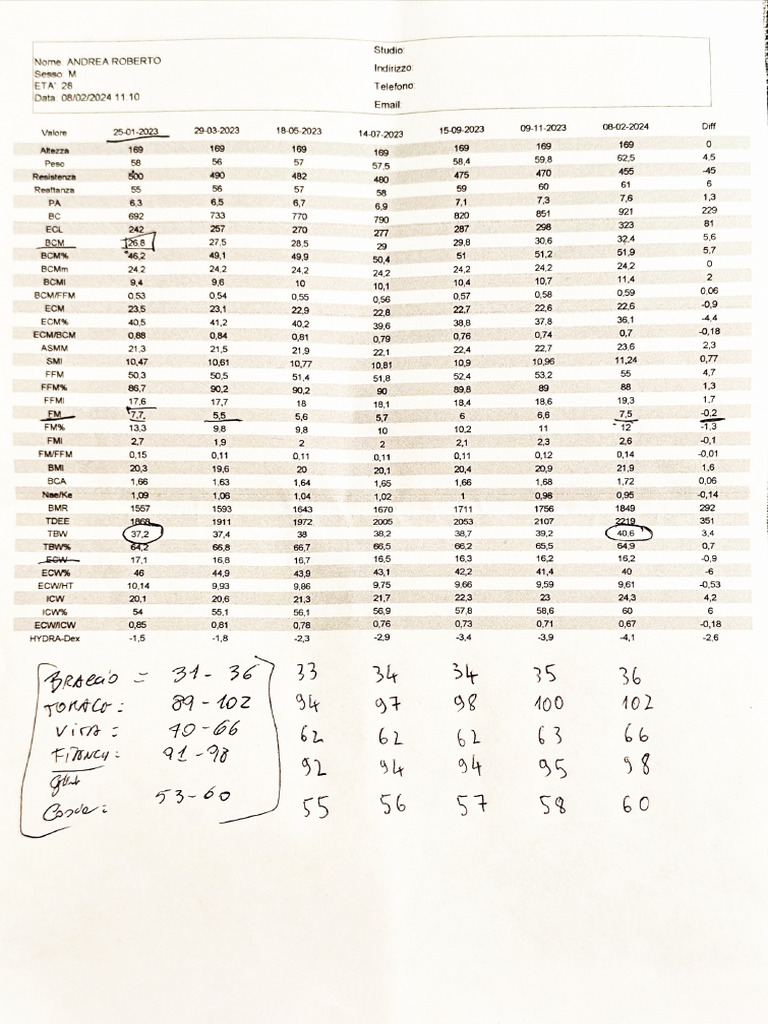 Studio:
Nome: ANDREA ROBERTO
Indirizzo:
Sesso: M
ETA': 28
Telefono:
Data: 08/02/2024 11.10
Email:
Valore 25-01-2023 29-03-2023 18-05-2023 14-07-2023 15-09-2023 09-11-2023 08-02-2024 Diff
Altezza 169 169 169 169 169 169 169 0
Peso 58 56 57 57,5 58,4 59,8 62,5 4,5
Resistenza 500 490 482 480 475 470 455 -45
Reattanza 55 56 57 58 59 60 61 6
PA 6,3 6,5 6,7 6,9 7,1 7,3 7,6 1,3
BC 692 733 770 790 820 851 921 229
ECL 242 257 270 277 287 298 323 81
BCM 26,8 27,5 28,5 29 29,8 30,6 32,4 5,6
BCM% 46,2 49,1 49,9 50,4 51 51,2 51,9 5,7
BCMm 24,2 24,2 24,2 24,2 24,2 24,2 24,2 0
BCMI 9,4 9,6 10 10,1 10,4 10,7 11,4 2
BCM/FFM 0,53 0,54 0,55 0,56 0,57 0,58 0,59 0,06
ECM 23,5 23,1 22,9 22,8 22,7 22,6 22,6 -0,9
ECM% 40,5 41,2 40,2 39,6 38,8 37,8 36,1 -4,4
ECM/BCM 0,88 0,84 0,81 0,79 0,76 0,74 0,7 -0,18
ASMM 21,3 21,5 21,9 22,1 22,4 22,7 23,6 2,3
SMI 10,47 10,61 10,77 10,81 10,9 10,96 11,24 0,77
FFM 50,3 50,5 51,4 51,8 52,4 53,2 55 4,7
FFM% 86,7 90,2 90,2 90 89,8 89 88 1,3
FFMI 17,6 17,7 18 18,1 18,4 18,6 19,3 1,7
FM 7,7 5,5 5,6 5,7 6 6,6 7,5 -0,2
FM% 13,3 9,8 9,8 10 10,2 11 12 -1,3
FMI 2,7 1,9 2 2 2,1 2,3 2,6 -0,1
FM/FFM 0,15 0,11 0,11 0,11 0,11 0,12 0,14 -0,01
BMI 20,3 19,6 20 20,1 20,4 20,9 21,9 1,6
BCA 1,66 1,63 1,64 1,65 1,66 1,68 1,72 0,06
Nae/Ke 1,09 1,06 1,04 1,02 1 0,98 0,95 -0,14
BMR 1557 1593 1643 1670 1711 1756 1849 292
TDEE 1868 1911 1972 2005 2053 2107 2219 351
TBW 37,2 37,4 38 38,2 38,7 39,2 40,6 3,4
TBW% 64,2 66,8 66,7 66,5 66,2 65,5 64,9 0,7
ECW 17,1 16,8 16,7 16,5 16,3 16,2 16,2 -0,9
ECW% 46 44,9 43,9 43,1 42,2 41,4 40 -6
ECW/HT 10,14 9,93 9,86 9,75 9,66 9,59 9,61 -0,53
ICW 20,1 20,6 21,3 21,7 22,3 23 24,3 4,2
ICW% 54 55,1 56,1 56,9 57,8 58,6 60 6
ECW/ICW 0,85 0,81 0,78 0,76 0,73 0,71 0,67 -0,18
HYDRA-Dex -1,5 -1,8 -2,3 -2,9 -3,4 -3,9 -4,1 -2,6
BRACCIO = 31-36 33 34 34 35 36
TORACO: 89-102 94 97 98 100 102
VITA: 70-66 62 62 62 63 66
FIANCHI: 91-98 92 94 94 95 98
53-60 55 56 57 58 60